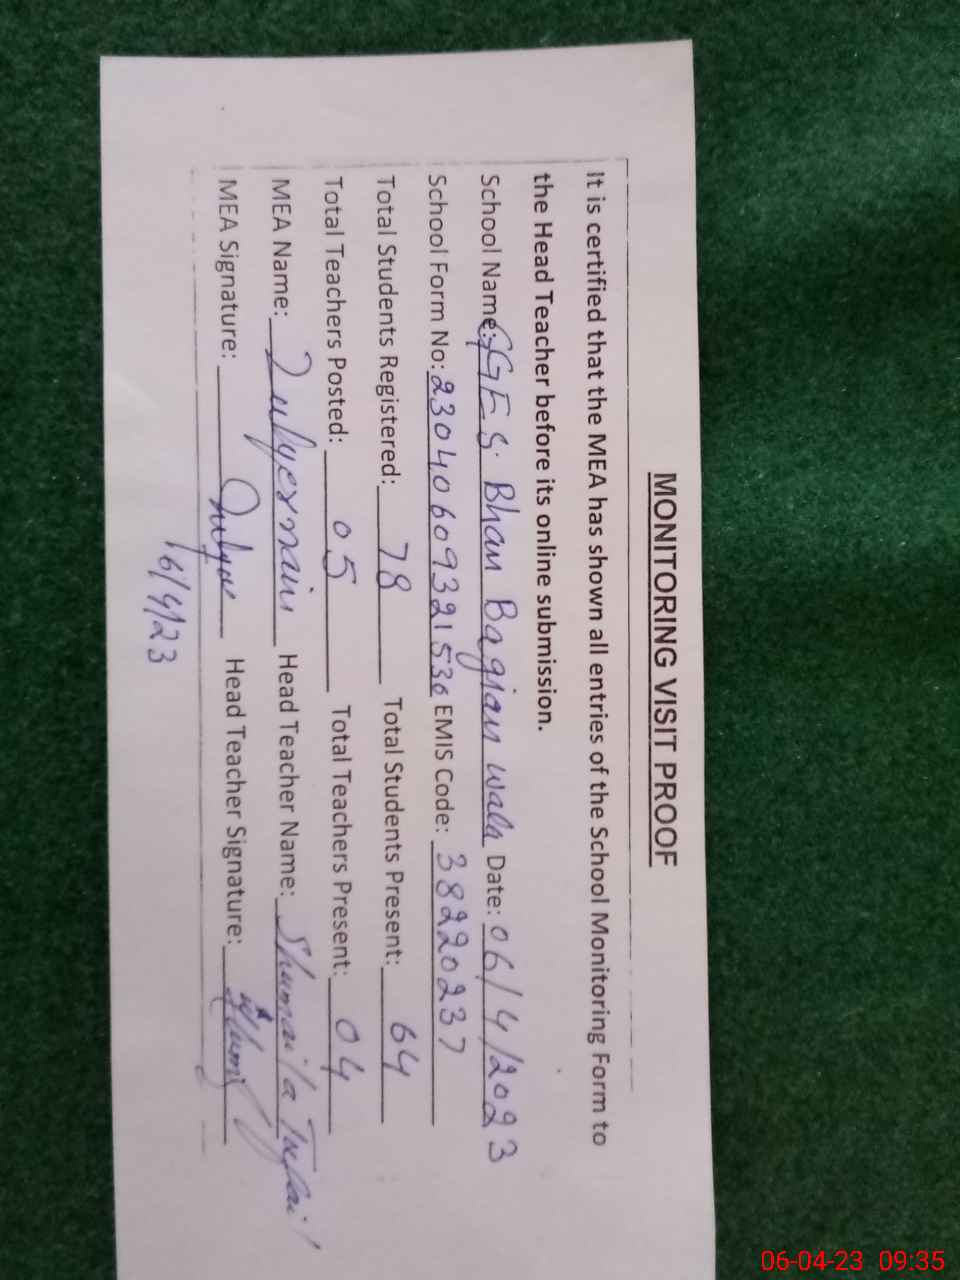 MONITORING VISIT PROOF
It is certified that the MEA has shown all entries of the School Monitoring Form to
the Head Teacher before its online submission.
School Name: GGES. Bhan Bagian wala Date: 06/4/2023
School Form No: 23040609321530 EMIS Code: 38220237
Total Students Registered: 78 Total Students Present: 64
Total Teachers Posted: 05 Total Teachers Present: 04
MEA Name: Zulqernain Head Teacher Name: Shumaila Tufail
MEA Signature: Head Teacher Signature:
6/4/23
06-04-23 09:35